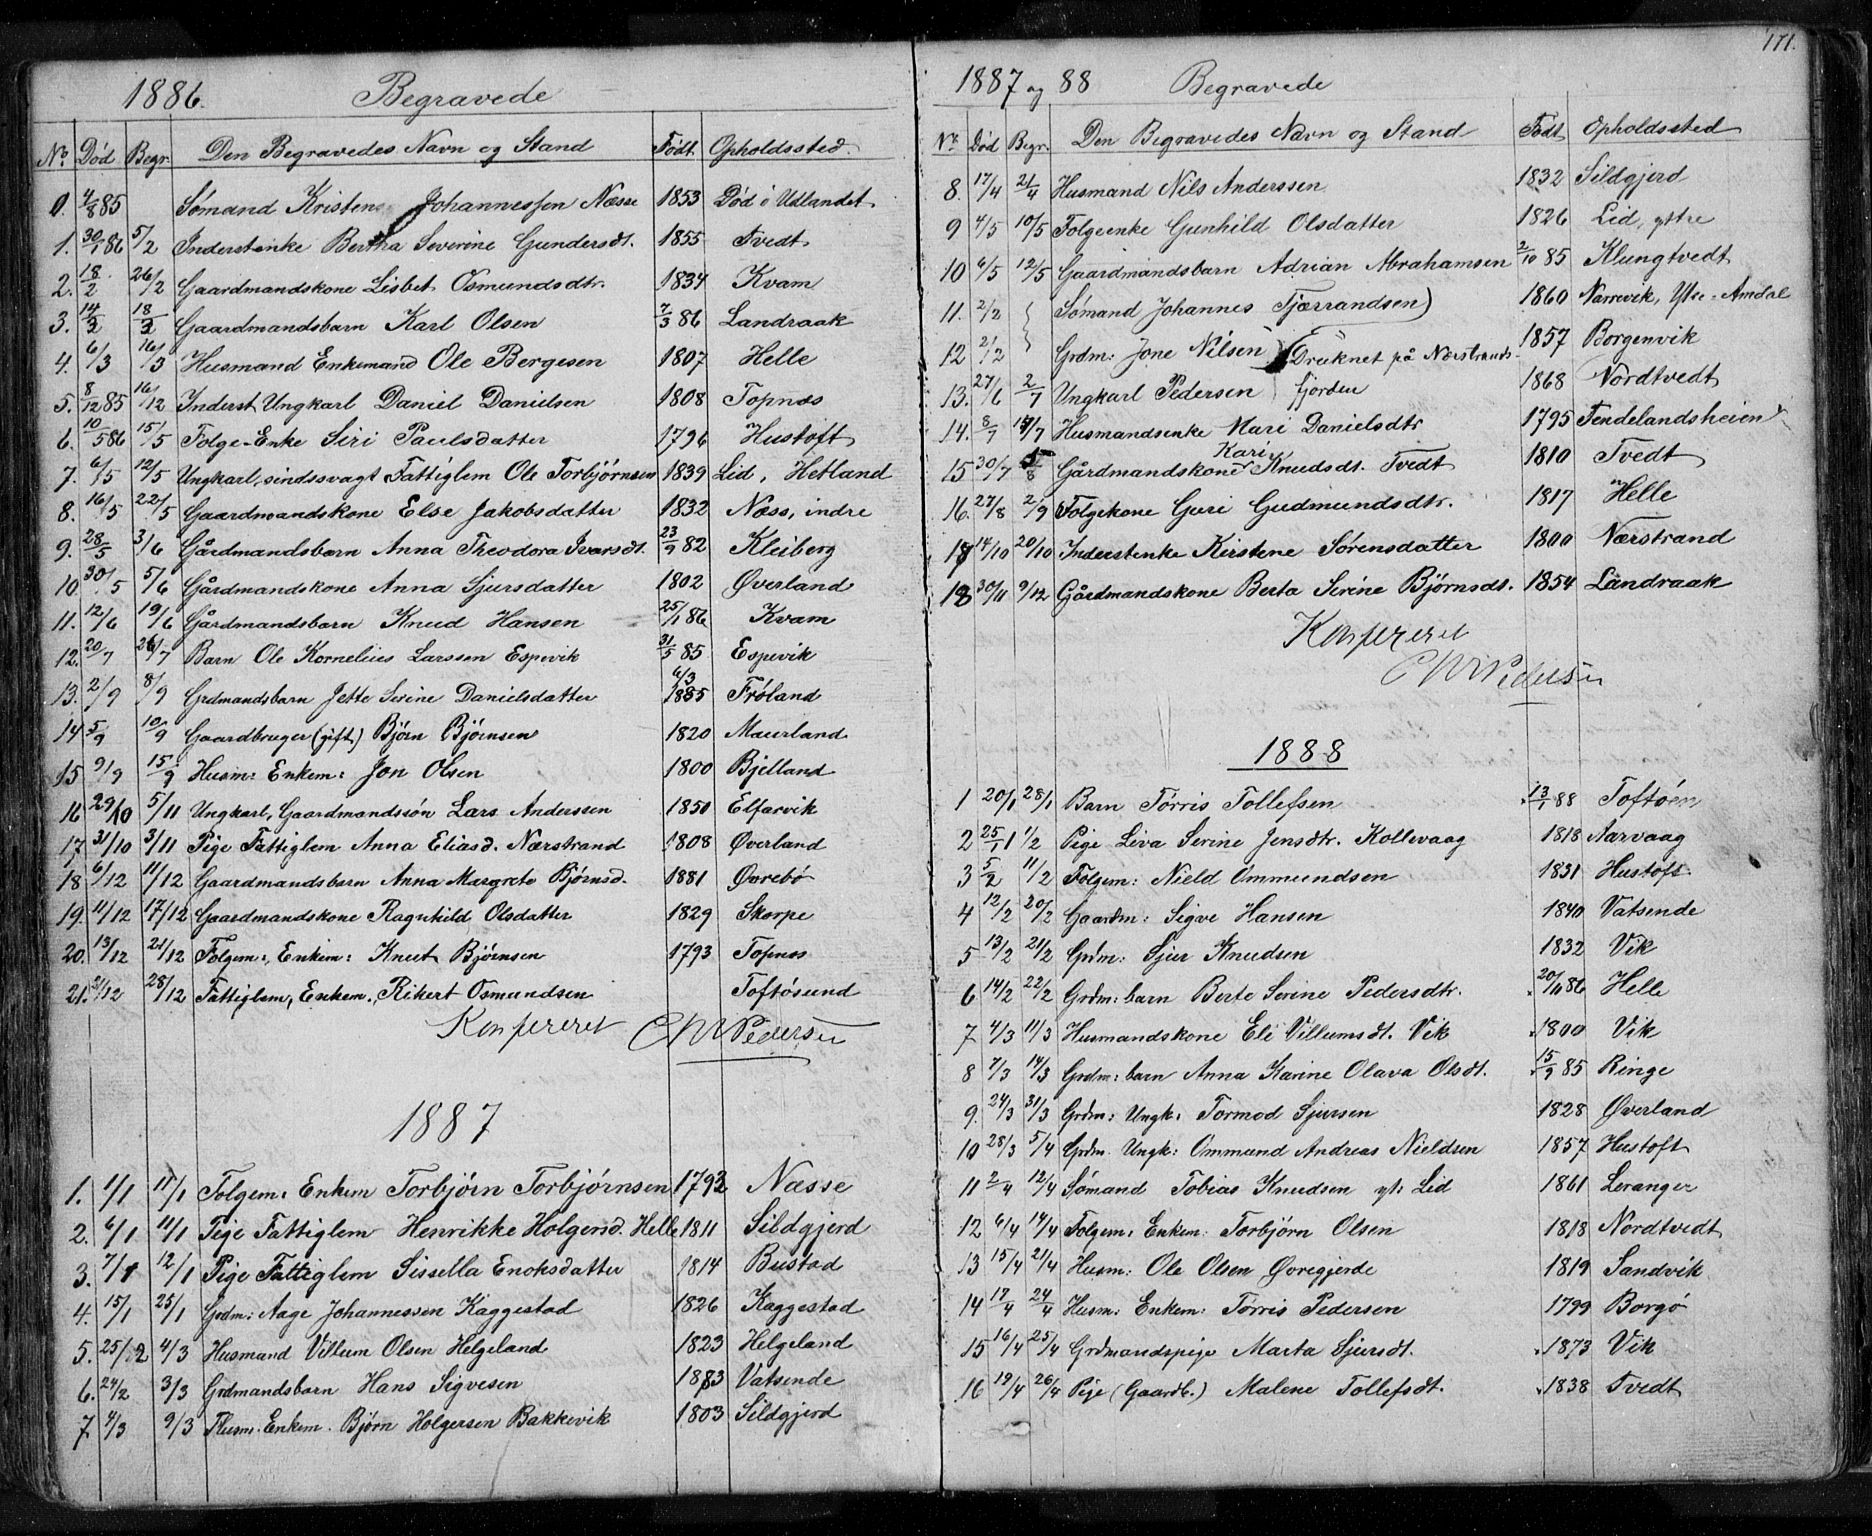 1886. Begravede
No. Død Begr. Den Begravedes Navn og Stand Født. Opholdssted.
0. 4/8 85 Sømand Kristen Johannessen Næsse 1853 Død i Udlandet
1. 30/1 86 5/2 Inderstenke Bertha Severine Gundersdt. 1855 Tvedt
2. 18/2 26/2 Gaardmandskone Lisbet Osmundsdtr. 1834 Kvam
3. 14/3 18/3 Gaardmandsbarn Karl Olsen 7/3 86 Landraak
4. 6/3 16/3 Husmand Enkemand Ole Bergesen 1807 Helle
5. 8/12 85 16/12 Inderst Ungkarl Daniel Danielsen 1808 Topnæs
6. 10/5 86 15/5 Folge-Enke Siri Paulsdatter 1796 Hustoft
7. 6/5 12/5 Ungkarl, sindssvagt Fattiglem Ole Torbjørnsen 1839 Lid, Hetland
8. 16/5 22/5 Gaardmandskone Else Jakobsdatter 1832 Næss, indre
9. 28/5 3/6 Gårdmandsbarn Anna Theodora Ivarsdt. 23/9 82 Kleiberg
10 30/5 5/6 Gårdmandskone Anna Sjursdatter 1802 Øverland
11. 12/6 19/6 Gårdmandsbarn Knud Hansen 25/1 86 Kvam
12. 20/7 26/7 Barn Ole Kornelius Larssen Espevik 31/5 85 Espevik
13. 2/9 8/9 Grdmandsbarn Jette Serine Danielsdatter 6/3 1885 Frøland
14 5/9 10/9 Gaardbruger (gift) Bjørn Bjørnsen 1820 Maurland
15 9/9 15/9 Husm: Enkem: Jon Olsen 1800 Bjelland
16 29/10 5/11 Ungkarl, Gaardmandssøn Lars Anderssen 1850 Elfarvik
17. 31/10 3/11 Pige Fattiglem Anna Eliasd. Nærstrand 1808 Øverland
18 6/12 11/12 Gaardmandsbarn Anna Margrete Bjørnsd. 1881 Øvrebø
19. 11/12 17/12 Gaardmandskone Ragnhild Olsdatter 1829 Skorpe
20. 13/12 21/12 Folgem:, Enkem: Knut Bjørnsen 1793 Topnes
21. 21/12 28/12 Fattiglem, Enkem., Rikert Osmundsen Toftøsund
Konfereret CMPedersen
1887
1. 1/1 11/1 Folgem: Enkem Torbjørn Torbjørnsen 1792 Næsse
2. 6/1 11/1 Pige Fattiglem Henrikke Holgersd. Helle 1811 Sildgjerd
3. 7/1 12/1 Pige Fattiglem Sissella Enoksdatter 1814 Bustad
4. 15/1 25/1 Grdm: Aage Johannessen Kaggestad 1826 Kaggestad
5. 25/2 4/3 Husmand Villum Olsen Helgeland 1823 Helgeland
6. 24/2 3/3 Grdmandsbarn Hans Sigvesen 1883 Vatsende
7 4/3 9/3 Husm. Enkem. Bjørn Holgersen Bakkevik 1803 Sildgjerd
171.
1887 og 88 Begravede
No. Død Begr. Den Begravedes Navn og Stand Født Opholdssted
8. 17/4 21/4 Husmand Nils Anderssen 1832 Sildgjerd
9 4/5 10/5 Folgeenke Gunhild Olsdatter 1826 Lid, ytre
10 6/5 12/5 Gaardmandsbarn Adrian Abrahamsen 2/10 85 Klungtvedt
11. 2/2 Sømand Johannes Tjærrandsen 1860 Narrevik, Ytre-Amdal
12 2/2 Grdm: Jone Nilsen Druknet på Nærstrands- 1857 Borgenvik
13. 27/6 2/7 Ungkarl Pedersen fjorden 1868 Nordtvedt
14. 8/7 14/7 Husmandsenke Mari Danielsdtr 1795 Tendelandsheien
15 30/7 5/8 Gårdmandskone Kari Knudsdt. Tvedt 1810 Tvedt
16. 27/8 2/9 Folgekone Guri Gudmundsdtr. 1817 Helle
17 14/10 20/10 Inderstenke Kirstene Sørensdatter 1800 Nærstrand
18 30/11 9/12 Gårdmandskone Berta Serine Bjørnsdt. 1854 Landraak
Konfereret
CMPedersen
1888
1 20/1 28/1 Barn Tørris Tollefsen 13/1 88 Toftøen
2 25/1 1/2 Pige Liva Serine Jensdtr. Kollevaag 1818 Aarvaag
3 5/2 11/2 Folgem: Nield Ommundsen 1831 Hustoft
4 12/2 20/2 Gaardm: Sigve Hansen 1840 Vatsende
5 13/2 21/2 Grdm: Sjur Knudsen 1832 Vik
6 14/2 22/2 Grdm: barn Berte Serine Pedersdtr. 20/11 86 Helle
7 4/3 11/3 Husmandskone Eli Villumsdt. Vik 1800 Vik
8 7/3 14/3 Grdm: barn Anna Karine Olava Olsdt. 15/9 85 Ringe
9. 24/3 31/3 Grdm: Ungk: Tormod Sjursen 1828 Øverland
10 28/3 5/4 Grdm. Ungk: Ommund Andreas Nieldsen 1857 Hustoft
11 2/4 12/4 Sømand Tobias Knudsen yt: Lid 1861 Leranger
12 6/4 14/4 Folgem: Enkem: Torbjørn Olsen 1818 Nordtvedt
13 15/4 21/4 Husm: Ole Olsen Øvregjerde 1819 Sandvik
14 17/4 24/4 Husm: Enkem: Tørris Pedersen 1799 Borgø
15 16/4 25/4 Grdmandspige Marta Sjursdt. 1873 Vik
16 19/4 26/4 Pige (Gaardb.) Malene Tollefsdt. 1838 Tvedt